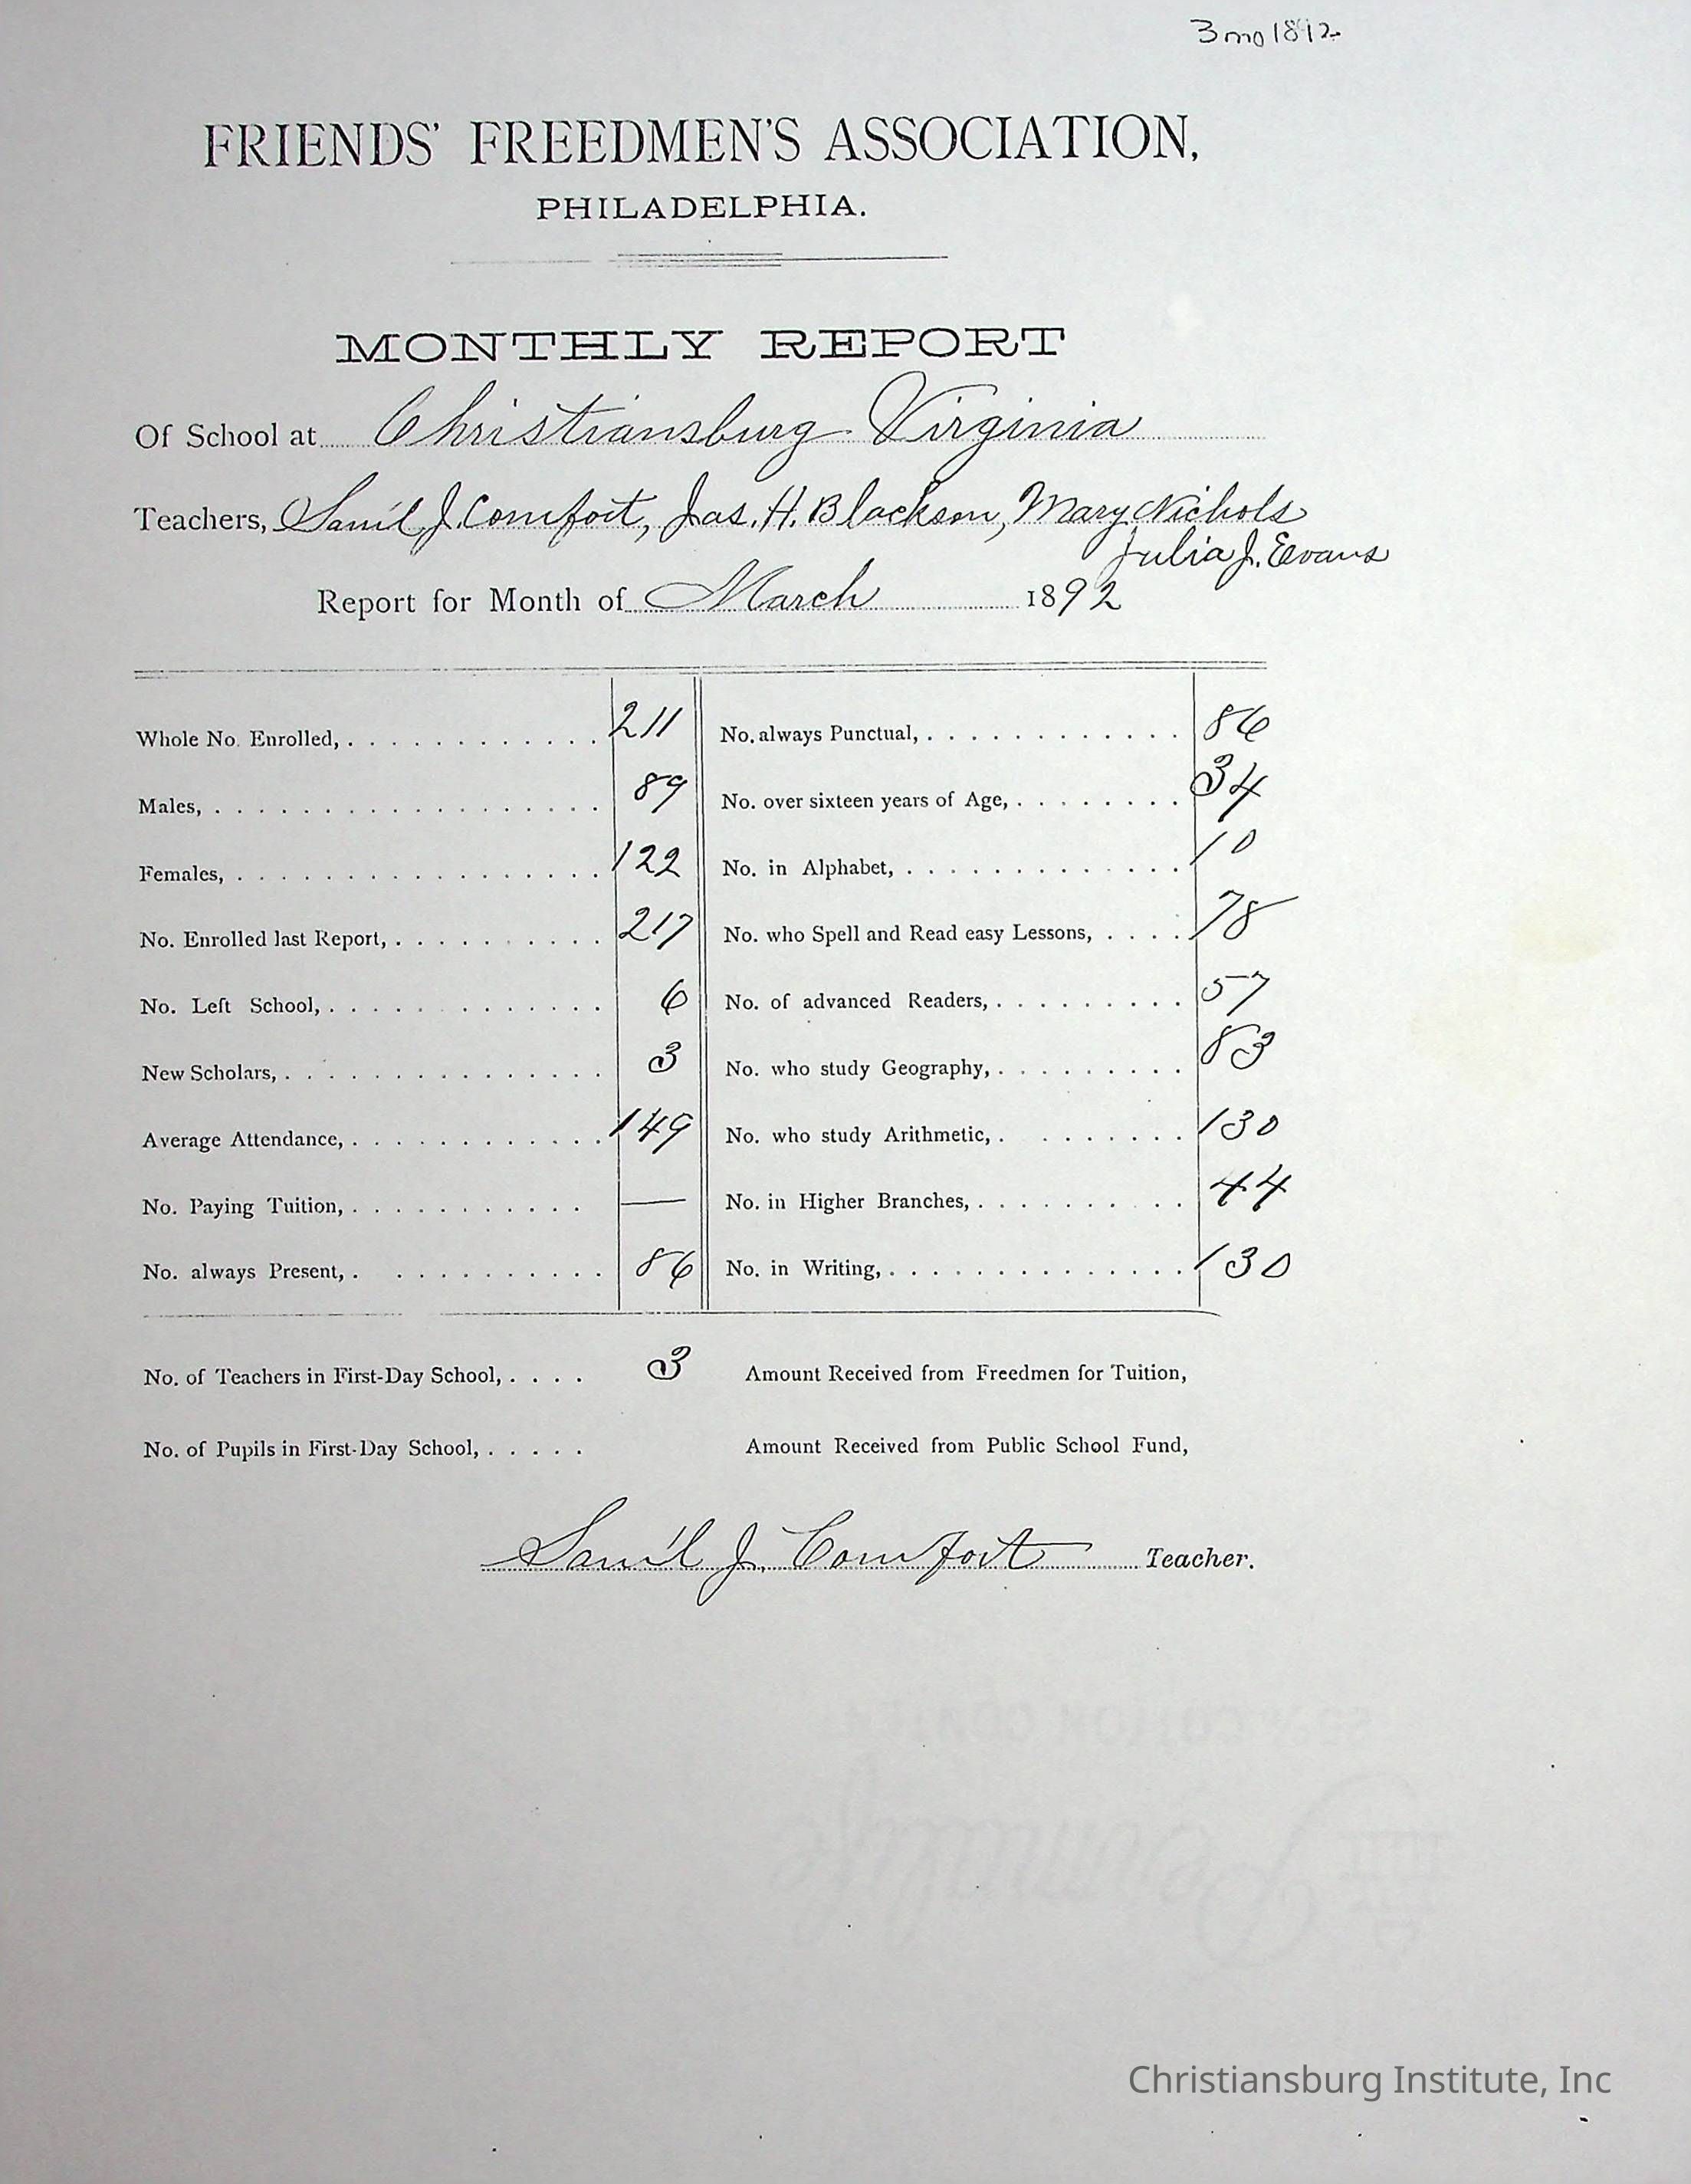 3 mo 1892
FRIENDS' FREEDMEN'S ASSOCIATION,
PHILADELPHIA.
MONTHLY REPORT
Of School at Christiansburg Virginia
Teachers, Sam'l J. Comfort, Jas. H. Blackson, Mary Nichols
Julia J. Evans
Report for Month of March 1892
Whole No. Enrolled, 211 No. always Punctual, 86
Males, 89 No. over sixteen years of Age, 34
Females, 122 No. in Alphabet, 10
No. Enrolled last Report, 217 No. who Spell and Read easy Lessons, 78
No. Left School, 6 No. of advanced Readers, 57
New Scholars, 3 No. who study Geography, 83
Average Attendance, 149 No. who study Arithmetic, 130
No. Paying Tuition, — No. in Higher Branches, 44
No. always Present, 86 No. in Writing, 130
No. of Teachers in First-Day School, 3 Amount Received from Freedmen for Tuition,
No. of Pupils in First-Day School, Amount Received from Public School Fund,
Sam'l J. Comfort Teacher.
Christiansburg Institute, Inc